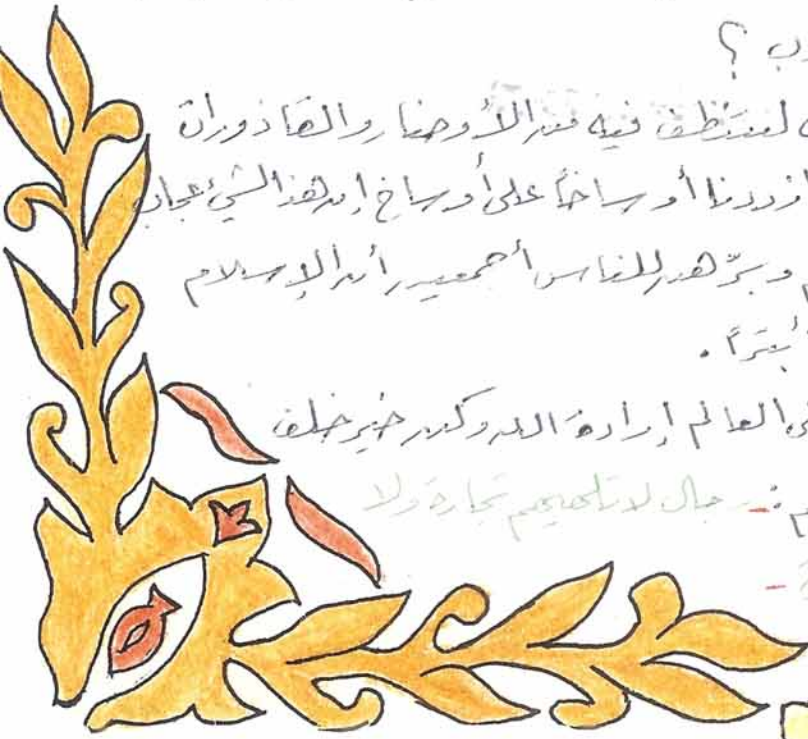 ؟
لنتنظف فيه من الأوضار والقاذورات
ازددنا أوساخاً على أوساخ إن هذا الشيء عجاب
وبرّهن للناس أجمعين أن الإسلام
أبتراً .
العالم إرادة الله وكن خير خلف
م : - رجال لا تلهيهم تجارة ولا
-